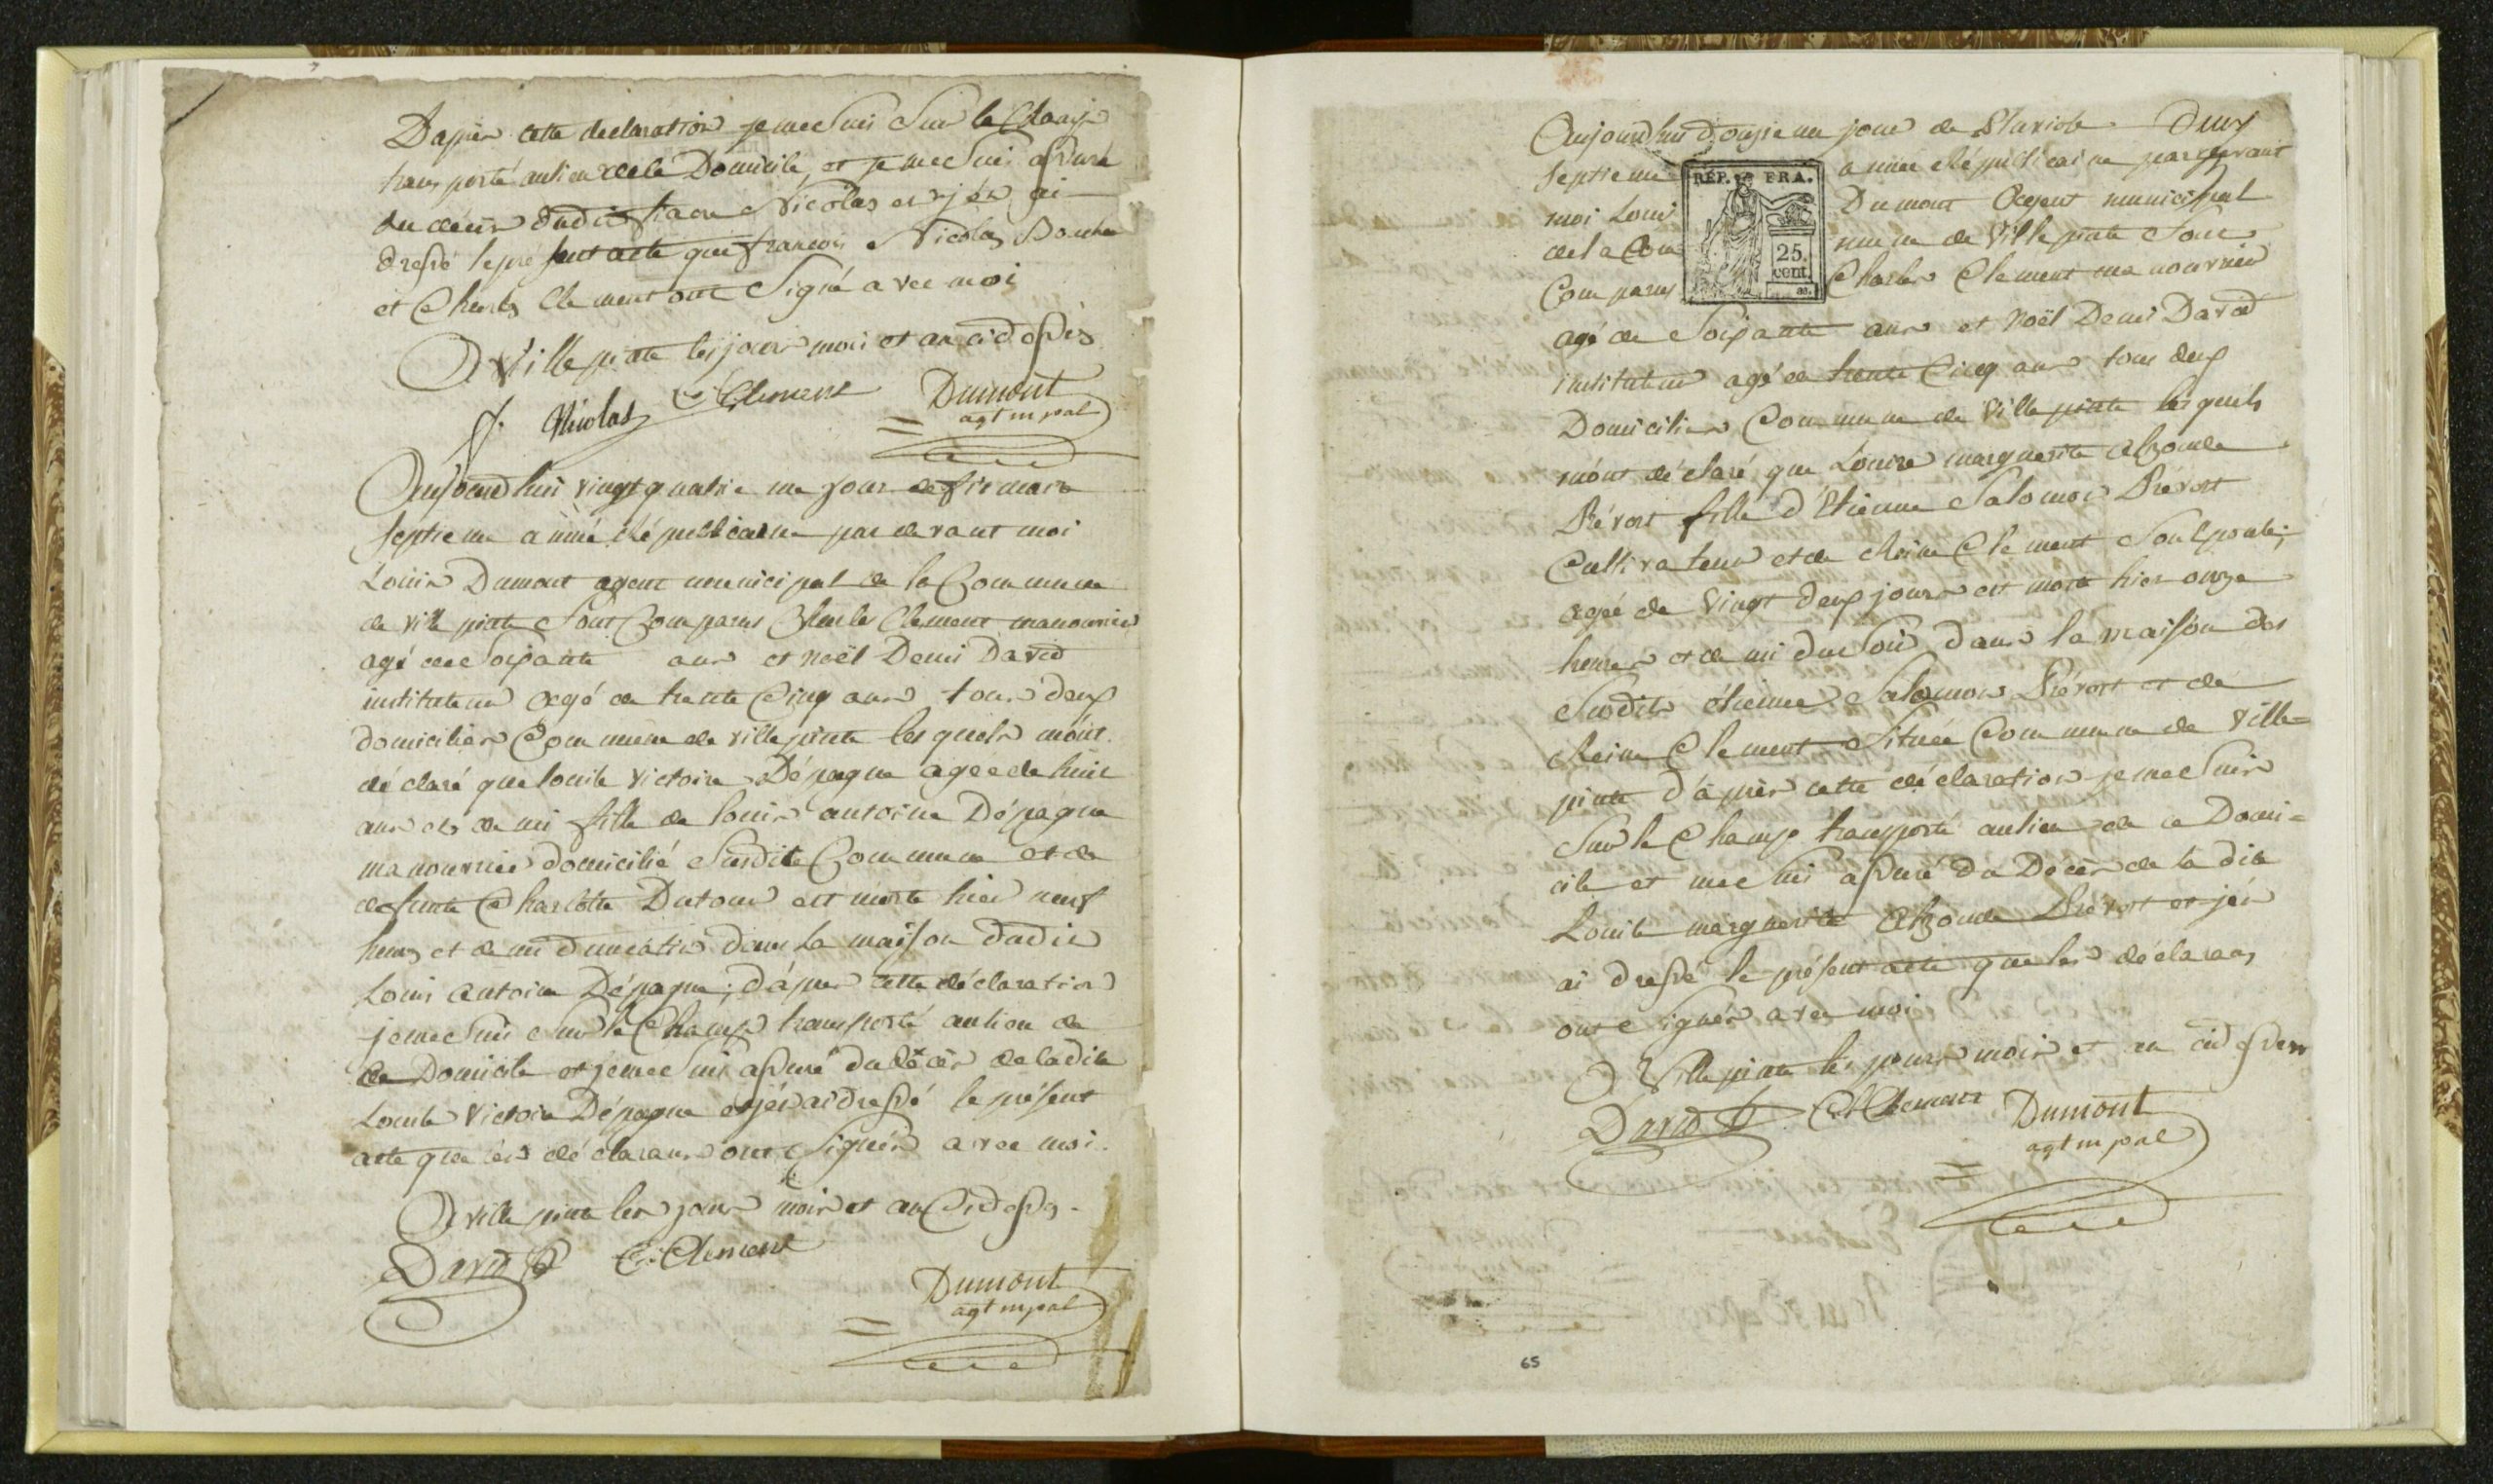 Dapres cette declaration je me Suis Sur le Champ
transporté au lieu de ce Domicile, et je me Suis assuré
du décès dudit Nicolas et j'en ai
dressé le présent acte que francois Nicolas
et Charles Clement ont Signé avec moi
A Villepinte les jour mois et an cidessus
f. Nicolas C. Clement Dumont
agt mpal
Aujourdhui vingt quatrieme jour de frimaire
septieme année Républicaine par devant moi
Louis Dumont agent municipal de la Commune
de Villepinte Sont Comparus Charles Clement manouvrier
agé de Soixante ans et Noël Denis David
instituteur agé de trente Cinq ans tous deux
domiciliés Commune de villepinte lesquels m'ont
déclaré que louise victoire Dépagne agée de huit
ans et demi fille de louis antoine Dépagne
manouvrier domicilié Susdite Commune et de
defunte Charlotte Dutour est morte hier neuf
heures et demi du matin dans la maison dudit
Louis antoine Dépagne; d'apres cette déclaration
je me Suis Sur le Champ transporté au lieu de
ce Domicile et je me Suis assuré du décès de ladite
Louise Victoire Dépagne et j'en ai dressé le présent
acte que les déclarans ont Signés avec moi.
A villepinte les jour mois et an Cidessus.
David C. Clement
Dumont
agt mpal
Aujourdhui douzieme jour de Pluviose Deux
septieme année Républicaine pardevant
moi Louis Dumont Agent municipal
de la Commune de Villepinte Sont
Comparus Charles Clement manouvrier
RÉP. FRA.
25.
cent.
agé de Soixante ans et Noël Denis David
instituteur agé de trente Cinq ans tous deux
Domiciliés Commune de Villepinte lesquels
m'ont déclaré que Louise marguerite
Prévost fille d'Etienne Salomon Prévost
Cultivateur et de Reine Clement Son Epouse;
agée de vingt deux jours est morte hier onze
heures et demi du Soir dans la maison des
Susdits étienne Salomon Prévost et de
Reine Clement Située Commune de Ville=
pinte d'après cette déclaration je me Suis
Sur le Champ transporté au lieu de ce Domi=
cile et me Suis assuré du Décès de la dite
Louise marguerite Prévost et j'en
ai dressé le présent acte que les déclarans
ont Signés avec moi
A Villepinte les jours mois et an cidessus
David C. Clement Dumont
agt mpal
65